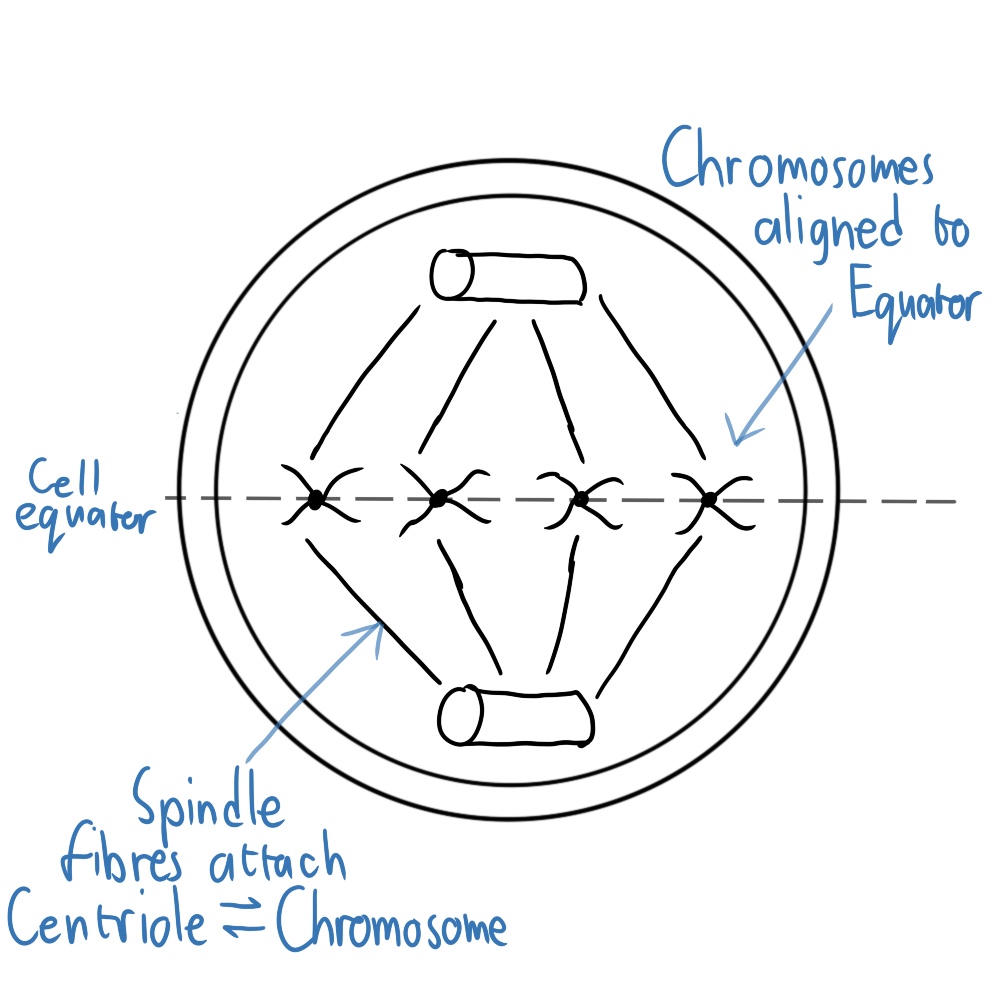 Chromosomes
aligned to
Equator
Cell
equator
Spindle
fibres attach
Centriole ⇌ Chromosome